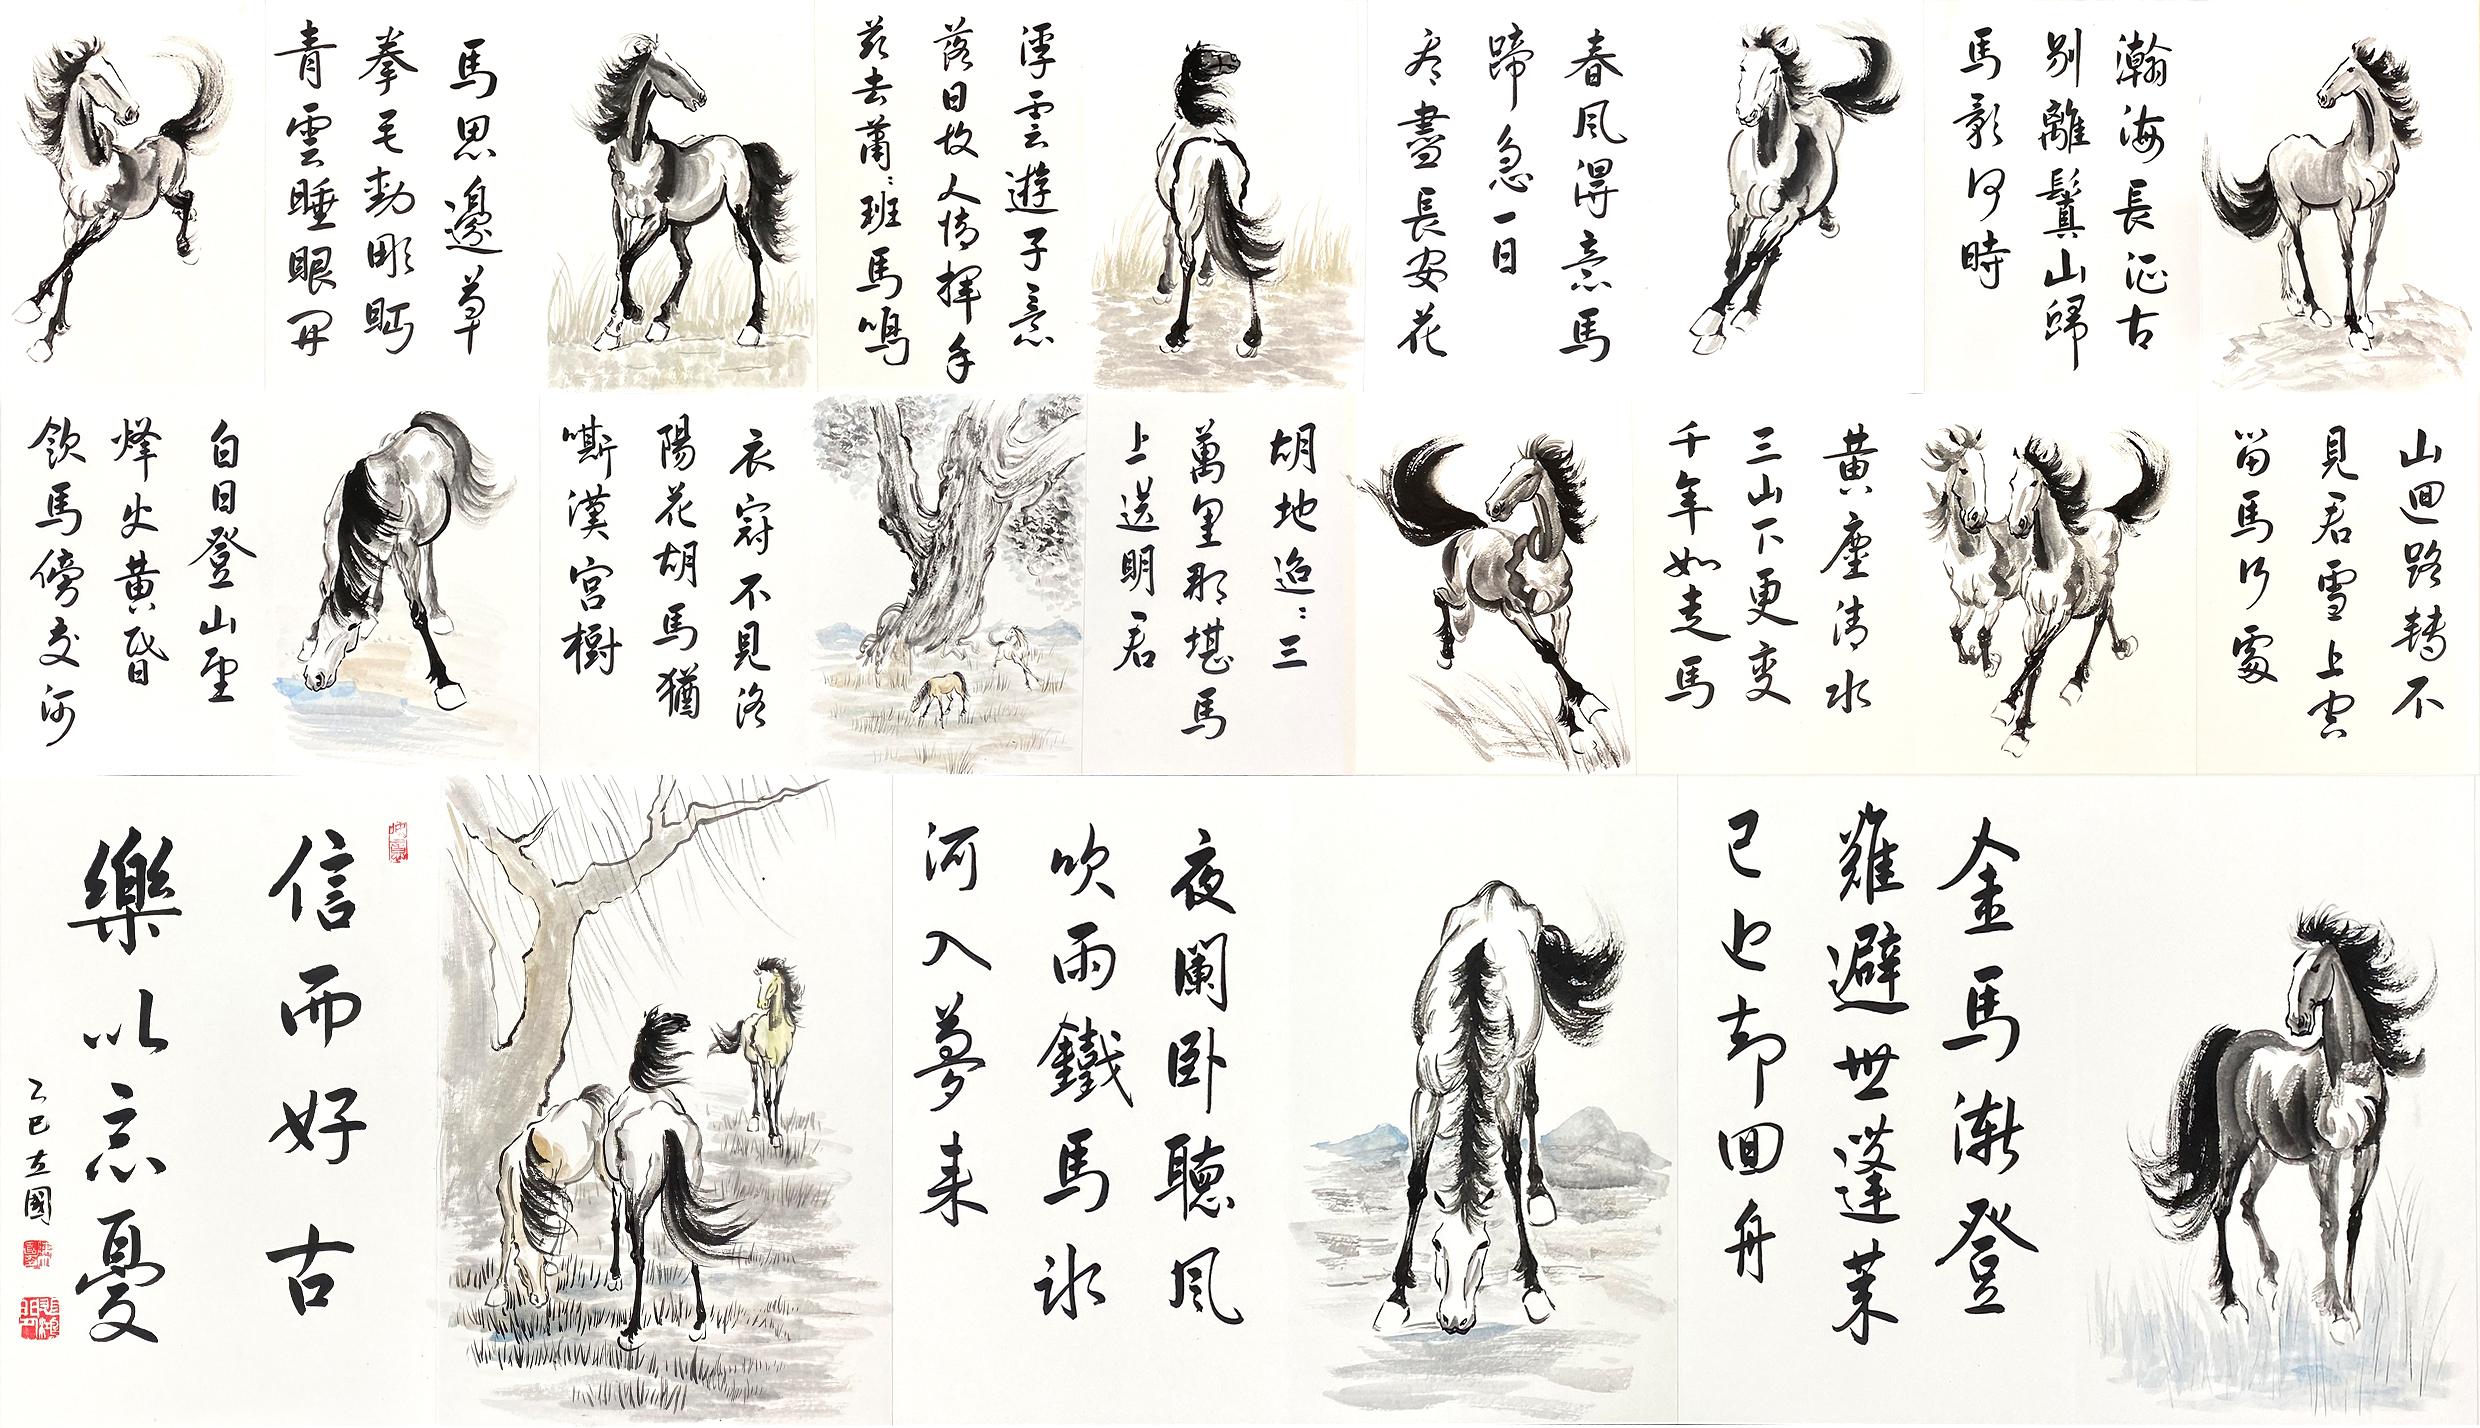 瀚海長征古
別離鬒山歸
馬影何時
春風得意馬
蹄急一日
看盡長安花
浮雲遊子意
落日故人情揮手
茲去蕭:班馬鳴
馬思邊草
拳毛動彫眄
青雲睡眼開
山迴路轉不
見君雪上空
留馬行處
黃塵清水
三山下更變
千年如走馬
胡地迢:三
萬里那堪馬
上送明君
衣冠不見洛
陽花胡馬猶
嘶漢宮樹
白日登山望
烽火黃昏
飲馬傍交河
金馬漸登
難避世蓬萊
已也却回舟
夜闌卧聽風
吹雨鐵馬冰
河入夢来
信而好古
樂以忘憂
乙巳立國